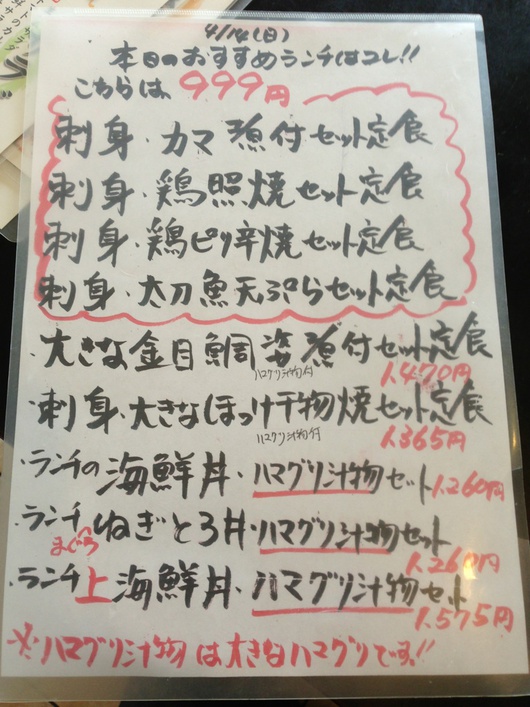 4/14(日)
本日のおすすめランチはコレ!!
こちらは、999円
刺身・カマ煮付セット定食
刺身・鶏照焼セット定食
刺身・鶏ピリ辛焼セット定食
刺身・太刀魚天ぷらセット定食
大きな金目鯛姿煮付セット定食
ハマグリ汁物付
1.470円
刺身・大きなほっけ干物焼セット定食
ハマグリ汁物付
1.365円
・ランチの海鮮丼・ハマグリ汁物セット1.260円
・ランチまぐろねぎとろ丼・ハマグリ汁物セット
1.260円
・ランチ上海鮮丼・ハマグリ汁物セット
1.575円
※ハマグリ汁物は大きなハマグリです!!